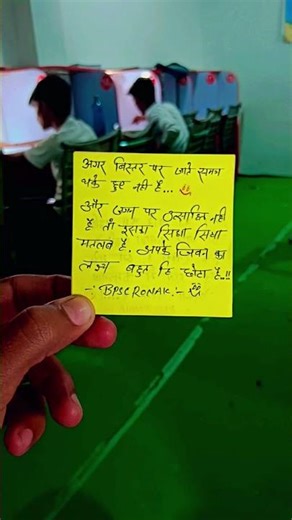 अगर बिस्तर पर जाते समय
थके हुए नही है...
और उठने पर उत्साहित नही
है तो इसका सिधा सिधा
मतलब है. आपके जिवन का
लक्ष्य बहुत हि छोटा है..!!
-: BPSC RONAK :-